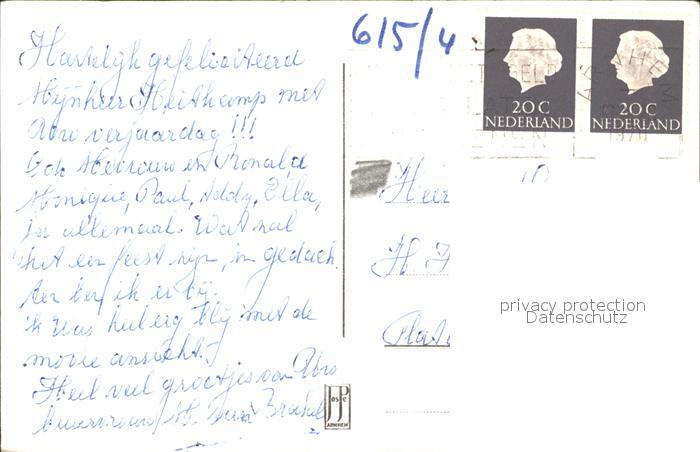 Hartelijk gefeliciteerd
Mijnheer Heithamp met
Uw verjaardag!!!
Ook Mevrouw en Ronald
Monique, Paul, Addy, Ella,
en allemaal. Wat zal
het een feest zijn, in gedach
ten ben ik er bij.
'k Was heel erg blij met de
mooie ansicht.
Heel veel groetjes van Uw
buurvrouw M. van
615/4
20 C
NEDERLAND
20 C
NEDERLAND
ARNHEM
Heer
H. H
Plat
privacy protection
Datenschutz
JosPé
ARNHEM